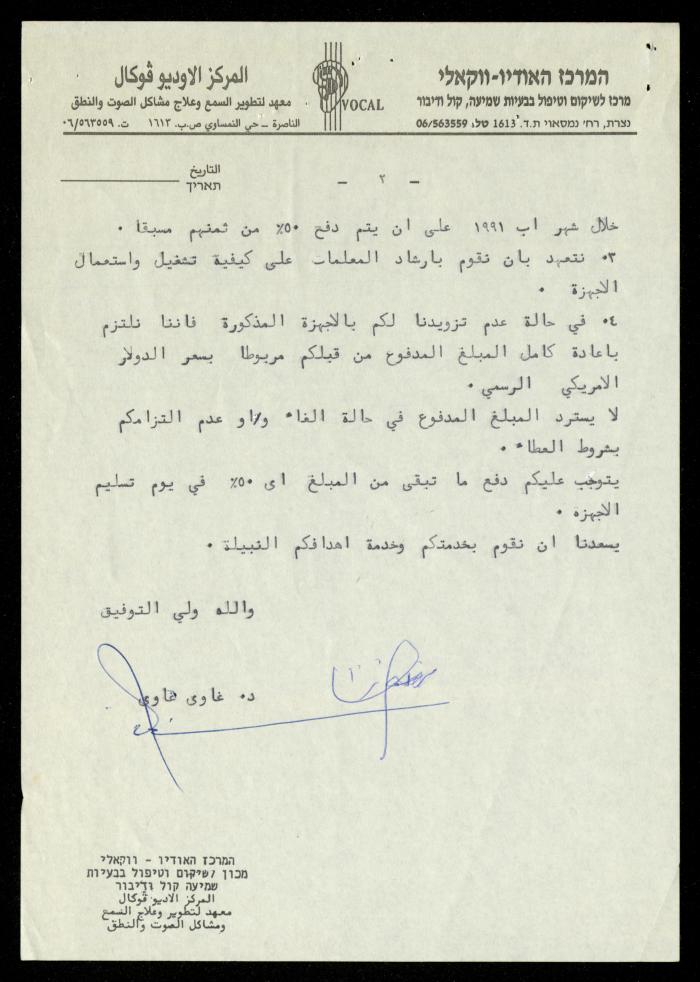 המרכז האודיו-ווקאלי
מרכז לשיקום וטיפול בבעיות שמיעה, קול ודיבור
נצרת, רח׳ נמסאוי ת.ד. 1613 טל׳ 06/563559
VOCAL
المركز الاوديو ڤوكال
معهد لتطوير السمع وعلاج مشاكل الصوت والنطق
الناصرة ــ حي النمساوي ص.ب. ١٦١٣ ت. ٠٦/٥٦٣٥٥٩
التاريخ
תאריך
- ٢ -
خلال شهر اب ١٩٩١ على ان يتم دفع ٥٠٪ من ثمنهم مسبقا ٠
٣٠ نتعهد بان نقوم بارشاد المعلمات على كيفية تشغيل واستعمال
الاجهزة ٠
٤٠ في حالة عدم تزويدنا لكم بالاجهزة المذكورة فاننا نلتزم
باعادة كامل المبلغ المدفوع من قبلكم مربوطا بسعر الدولار
الامريكي الرسمي ٠
لا يسترد المبلغ المدفوع في حالة الغاء و/او عدم التزامكم
بشروط العطاء ٠
يتوجب عليكم دفع ما تبقى من المبلغ اى ٥٠٪ في يوم تسليم
الاجهزة ٠
يسعدنا ان نقوم بخدمتكم وخدمة اهدافكم النبيلة ٠
والله ولي التوفيق
د٠ غاوى غاوى
המרכז האודיו - ווקאלי
מכון לשיקום וטיפול בבעיות
שמיעה קול ודיבור
المركز الاديو ڤوكال
معهد لتطوير وعلاج السمع
ومشاكل الصوت والنطق